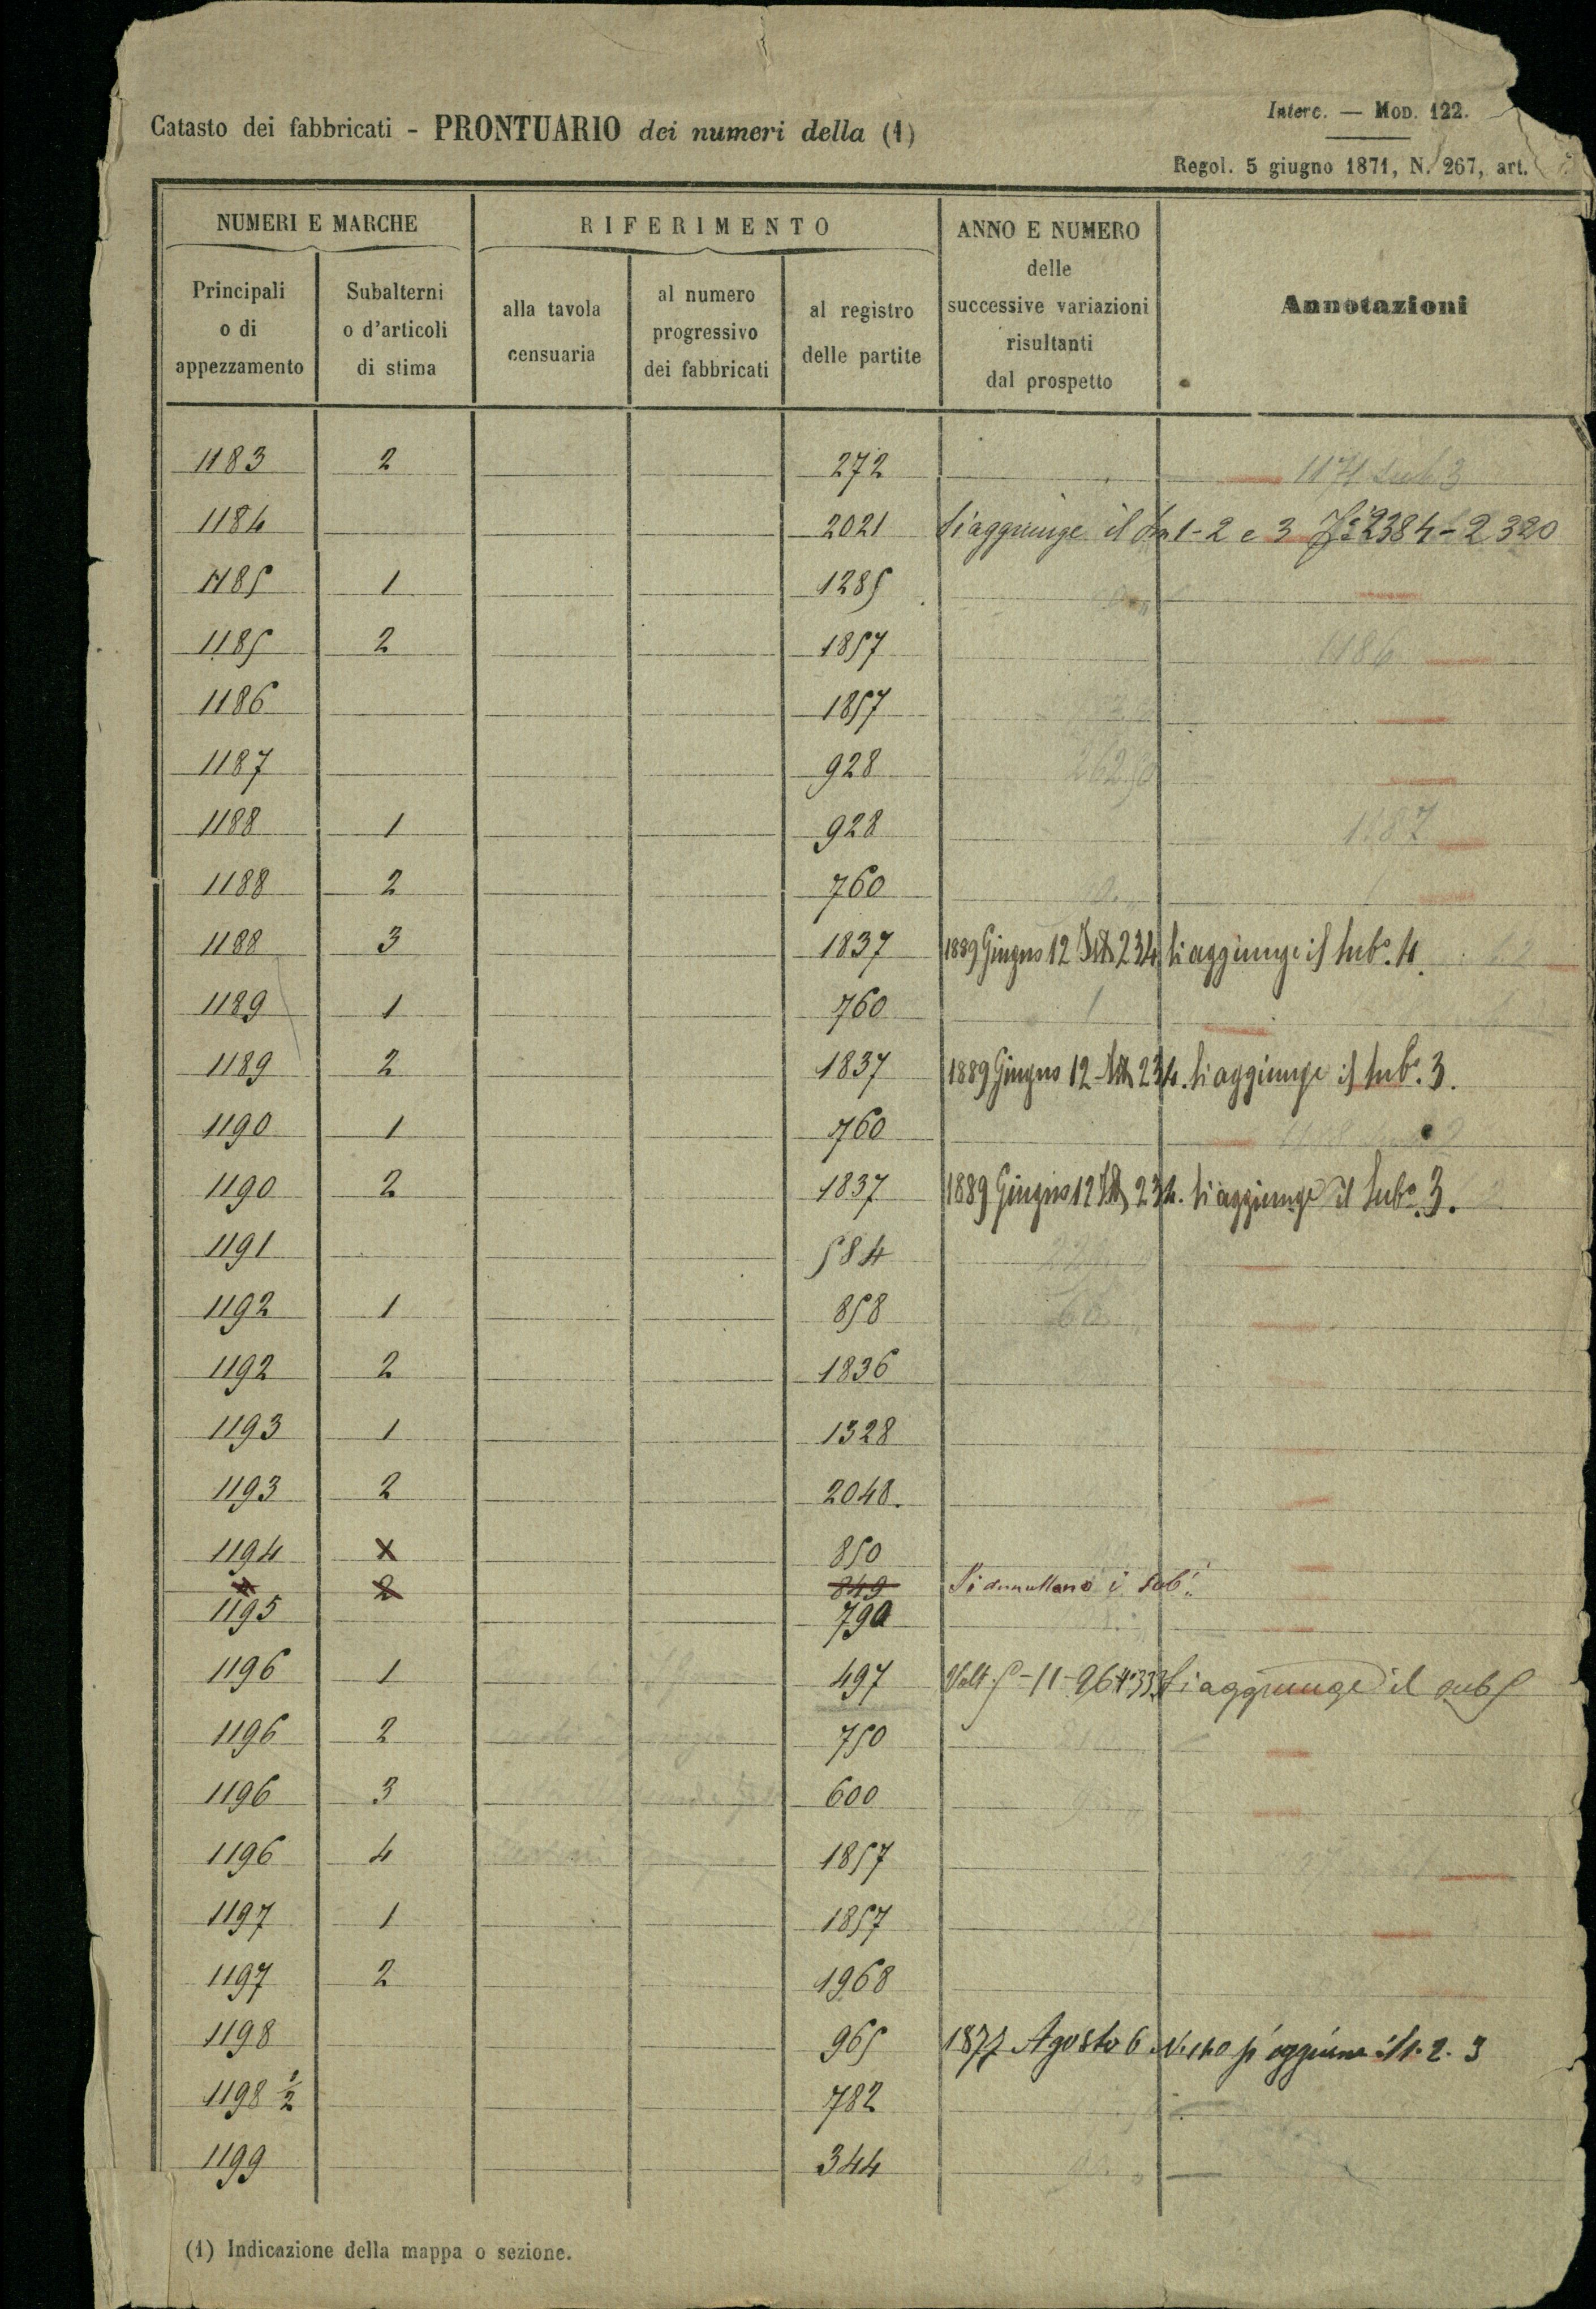 Interc. — Mod. 122.
Catasto dei fabbricati - PRONTUARIO dei numeri della (1)
Regol. 5 giugno 1871, N. 267, art.
NUMERI E MARCHE
RIFERIMENTO
ANNO E NUMERO delle successive variazioni risultanti dal prospetto
Annotazioni
Principali o di appezzamento
Subalterni o d'articoli di stima
alla tavola censuaria
al numero progressivo dei fabbricati
al registro delle partite
1183 2 272 1171 sub 3
1184 2021 Si aggiunge il 1-2 e 3 2384-2320
1185 1 1285
1185 2 1857 1186
1186 1857
1187 928 262.50
1188 1 928 1187
1188 2 760
1188 3 1837 1889 Giugno 12 234 Si aggiunge il Sub.o 4.
1189 1 760
1189 2 1837 1889 Giugno 12 234. Si aggiunge il Sub.o 3.
1190 1 760
1190 2 1837 1889 Giugno 12 234. Si aggiunge il Sub.o 3.
1191 584
1192 1 858 60
1192 2 1836
1193 1 1328
1193 2 2048.
1194 X 850
" 2 849 Si annullano i Sub.i
1195 790
1196 1 497 Volt. 5-11-96 N° 333 Si aggiunge il sub 5
1196 2 750
1196 3 600
1196 4 1857
1197 1 1857
1197 2 1968
1198 965 1877 Agosto 6 N. 140 si aggiunge il 1. 2. 3
1198 1/2 782
1199 344
(1) Indicazione della mappa o sezione.